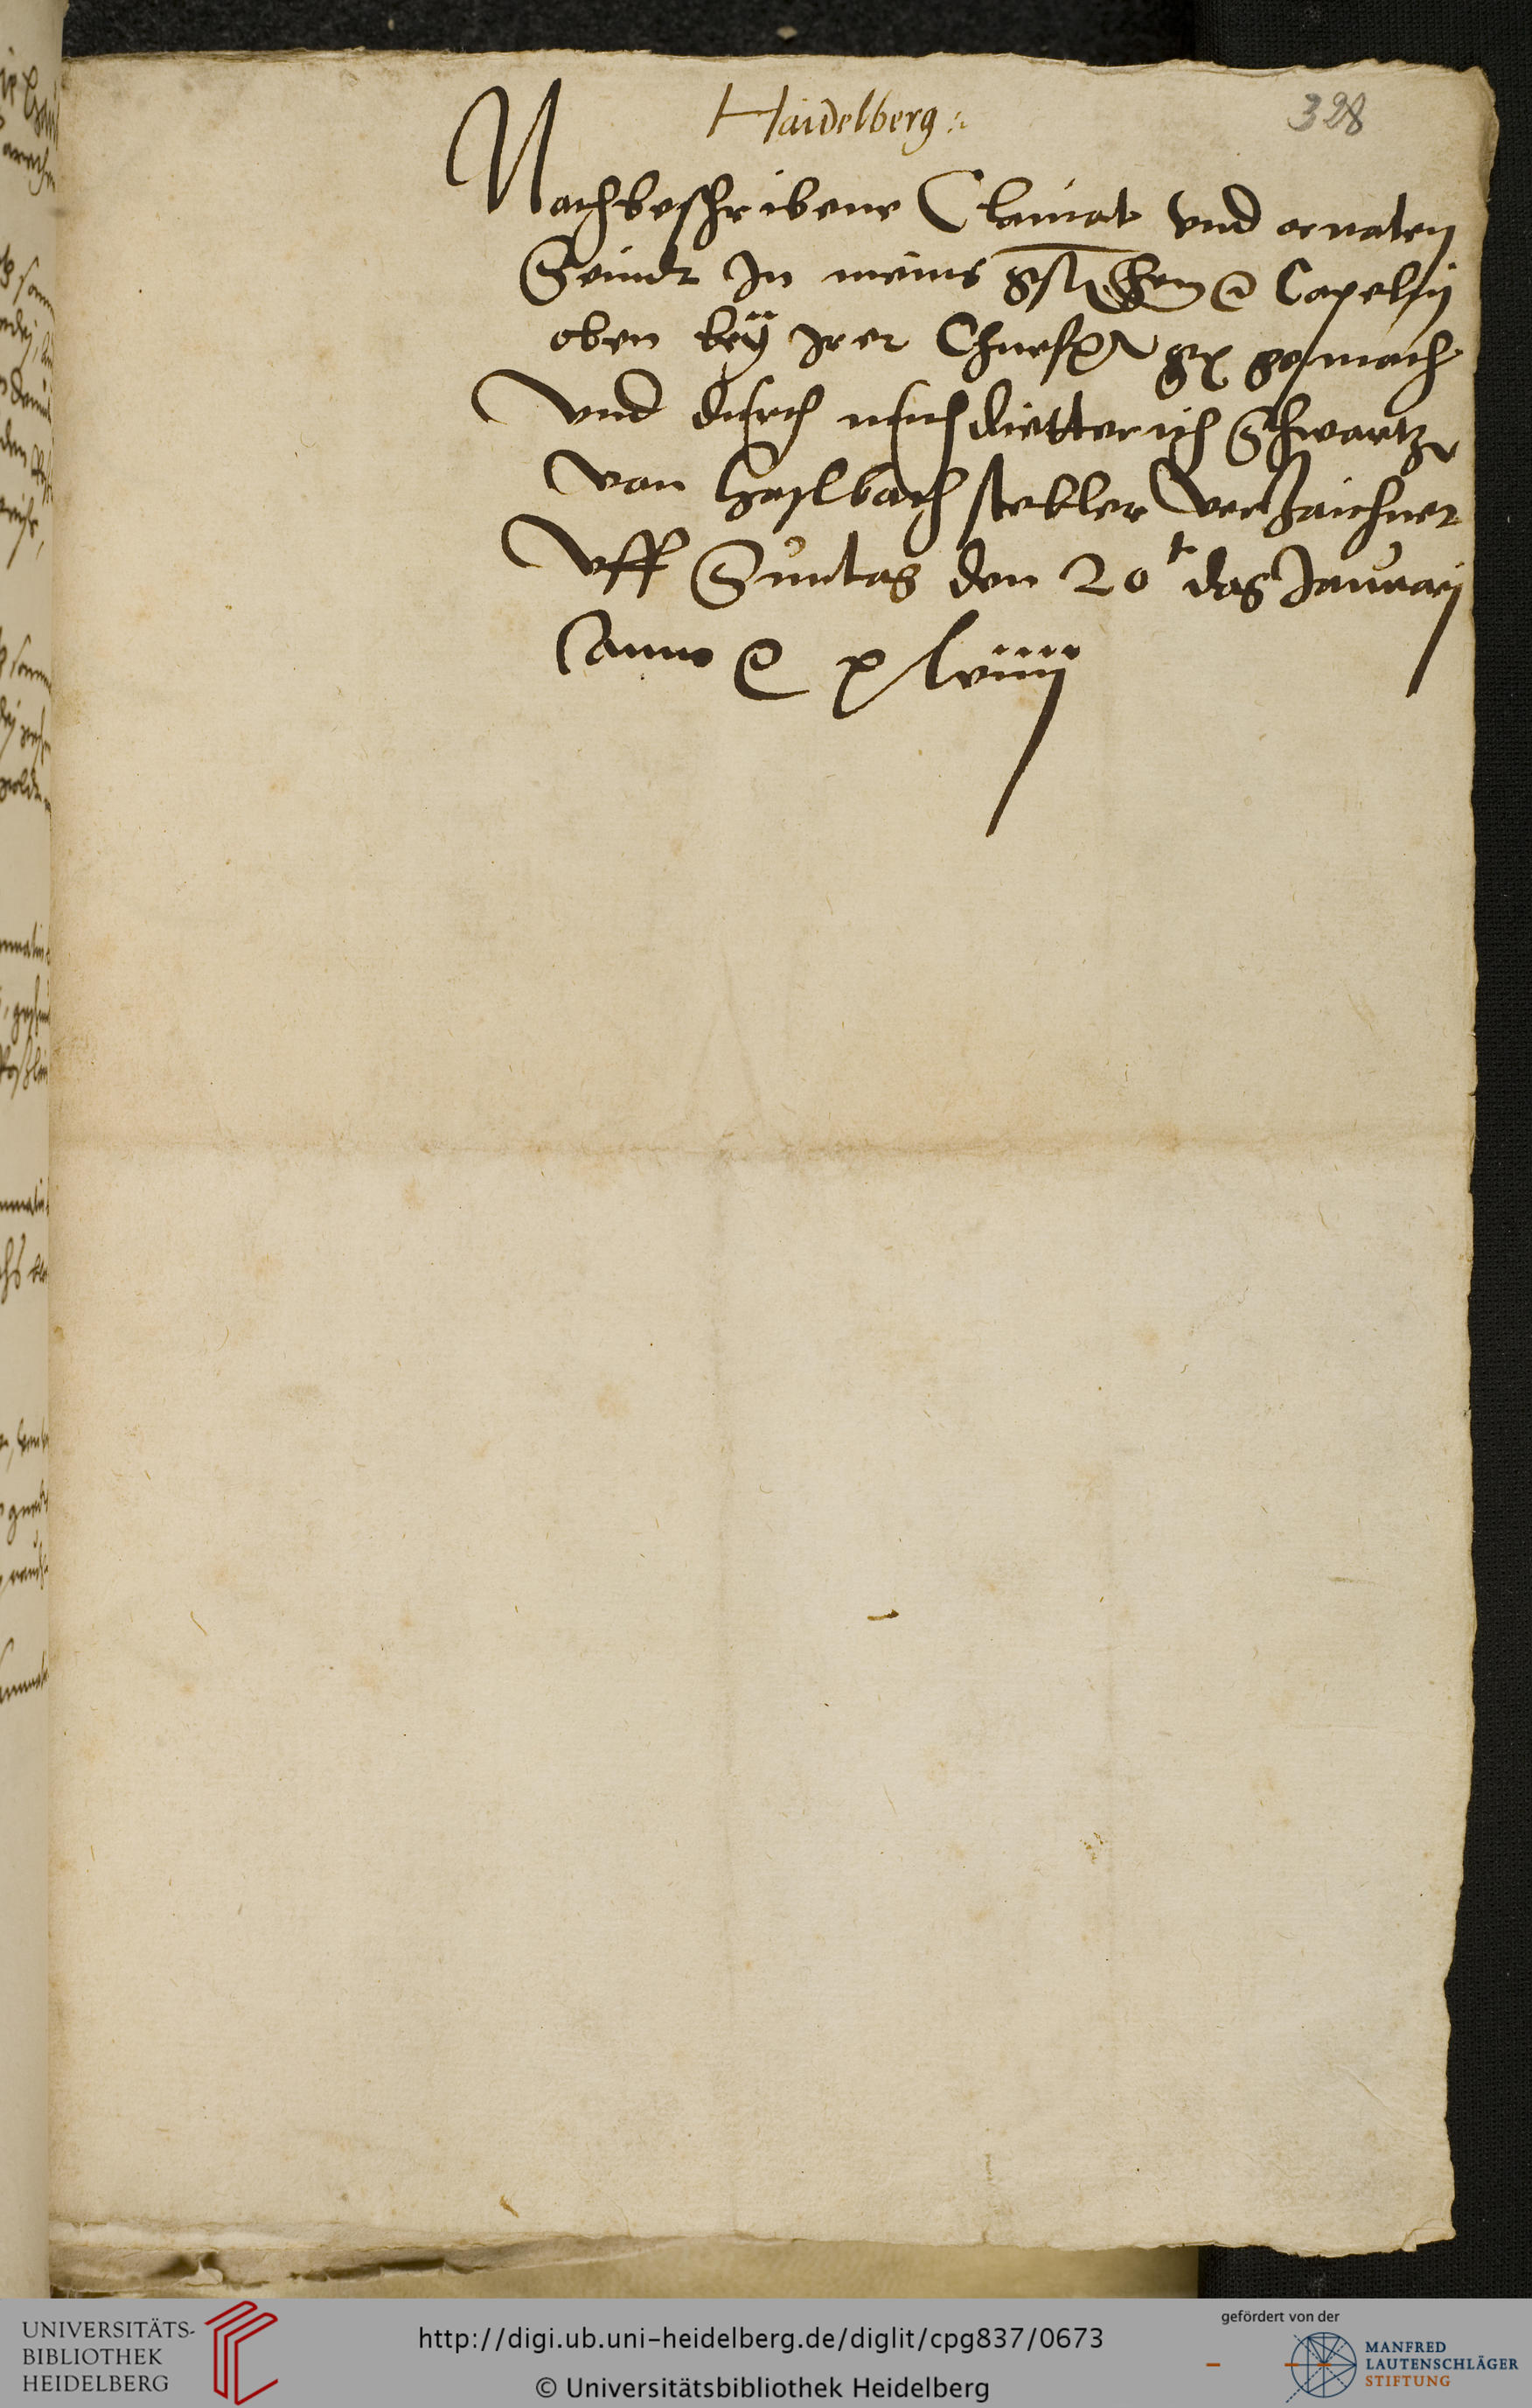 Haidelberg
328
Nachbeschribene Clainat vnd ornaten
Seindt In meins gst hern Capeln
oben bey irer Churf gn gemach
Vnd durch mich dietterich Schwartz
von Haslbach stebler verzaichnet
Vff Suntag den 20t das Januarij
Anno lviiij
UNIVERSITÄTS-
BIBLIOTHEK
HEIDELBERG
http://digi.ub.uni-heidelberg.de/diglit/cpg837/0673
© Universitätsbibliothek Heidelberg
gefördert von der
MANFRED
LAUTENSCHLÄGER
STIFTUNG